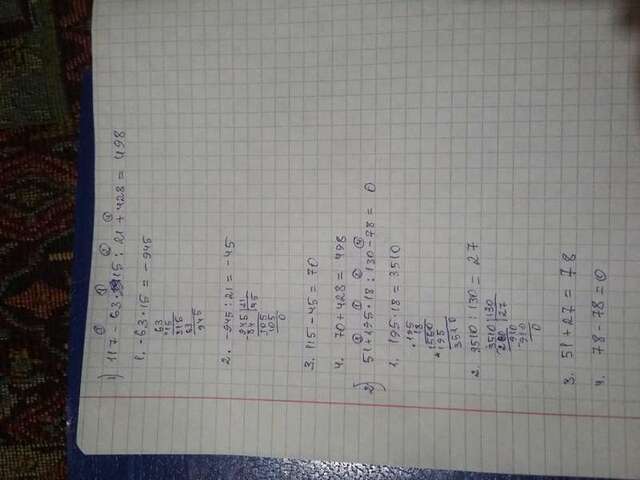 ③ ① ② ④
1) 117 - 63 · 15 : 21 + 428 = 498
1. -63 · 15 = -945
63
15
315
63
945
2. -945 : 21 = -45
-945 | 21
84 | 45
105
105
0
3. 115 - 45 = 70
4. 70 + 428 = 498
③ ① ② ④
2) 51 + 195 · 18 : 130 - 78 = 0
1. 195 · 18 = 3510
195
18
1560
+195
3510
2. 3510 : 130 = 27
3510 | 130
260 | 27
910
910
0
3. 51 + 27 = 78
4. 78 - 78 = 0